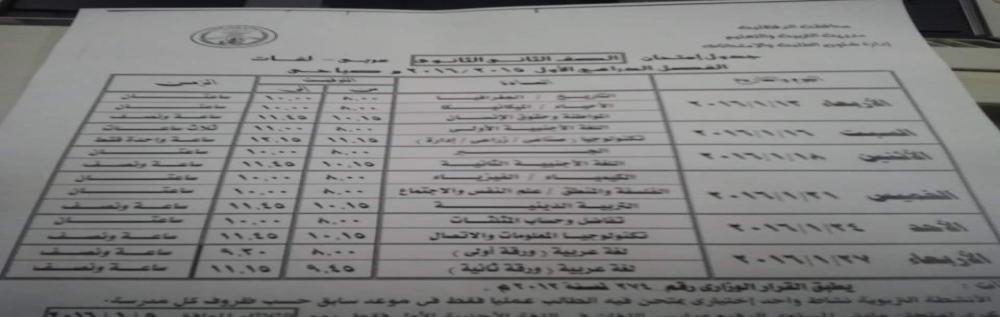 محافظة الدقهلية
مديرية التربية والتعليم
إدارة شئون الطلبة والامتحانات
جدول إمتحان الصف الثانى الثانوى عربى - لغات
الفصل الدراسى الأول ٢٠١٥ / ٢٠١٦ م صباحى
اليوم والتاريخ المادة التوقيت الزمن
من إلى
الأربعاء ٢٠١٦/١/١٣ التاريخ / الجغرافيا ٨.٠٠ ١٠.٠٠ ساعتان
الأحياء / الميكانيكا ٨.٠٠ ١٠.٠٠ ساعتان
المواطنة وحقوق الإنسان ١٠.١٥ ١١.٤٥ ساعة ونصف
السبت ٢٠١٦/١/١٦ اللغة الأجنبية الأولى ٨.٠٠ ١١.٠٠ ثلاث ساعات
تكنولوجيا ( صناعى / زراعى / إدارة ) ١١.١٥ ١٢.١٥ ساعة واحدة فقط
الأثنين ٢٠١٦/١/١٨ الجبر ٨.٠٠ ١٠.٠٠ ساعتان
اللغة الأجنبية الثانية ١٠.١٥ ١١.٤٥ ساعة ونصف
الخميس ٢٠١٦/١/٢١ الكيمياء / الفيزياء ٨.٠٠ ١٠.٠٠ ساعتان
الفلسفة والمنطق / علم النفس والاجتماع ٨.٠٠ ١٠.٠٠ ساعتان
التربية الدينية ١٠.١٥ ١١.٤٥ ساعة ونصف
الأحد ٢٠١٦/١/٢٤ تفاضل وحساب المثلثات ٨.٠٠ ١٠.٠٠ ساعتان
تكنولوجيا المعلومات والاتصال ١٠.١٥ ١١.٤٥ ساعة ونصف
الأربعاء ٢٠١٦/١/٢٧ لغة عربية ( ورقة أولى ) ٨.٠٠ ٩.٣٠ ساعة ونصف
لغة عربية ( ورقة ثانية ) ٩.٤٥ ١١.١٥ ساعة ونصف
يطبق القرار الوزارى رقم ٣٧٤ لسنة ٢٠١٣ م .
الأنشطة التربوية نشاط واحد إختيارى يمتحن فيه الطالب عمليا فقط فى موعد سابق حسب ظروف كل مدرسة .